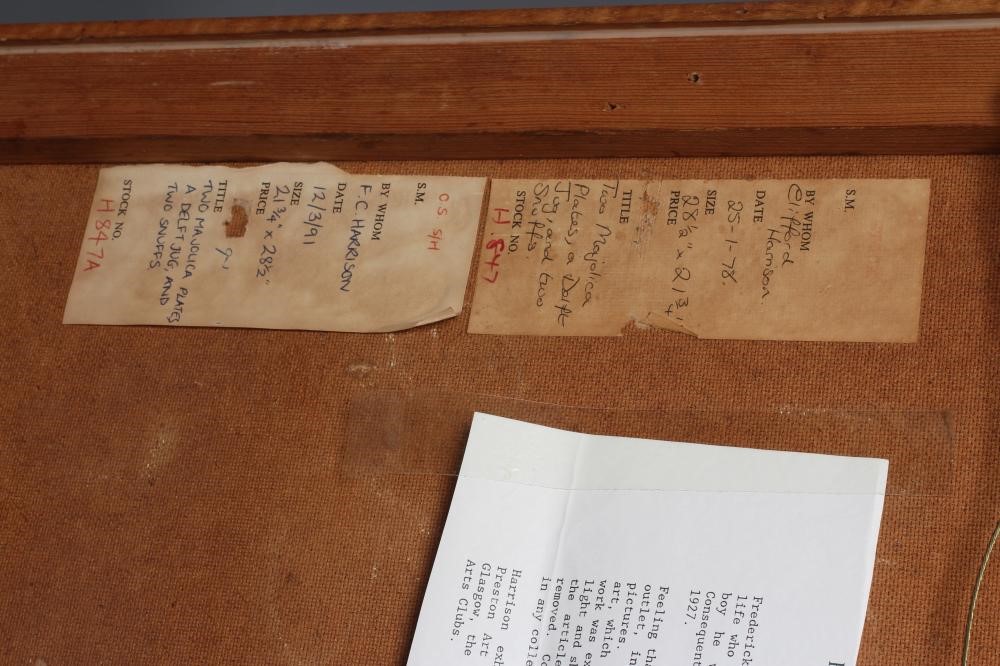 S.M.
BY WHOM
Clifford
Harrison.
DATE
25-1-78.
SIZE
28½" x 21¾"
PRICE
TITLE
Two Majolica
Plates, a Delft
Jug, and two
Snuffs.
STOCK NO.
H.847
O.S S/H
S.M.
BY WHOM
F.C. HARRISON
DATE
12/3/91
SIZE
21¾" x 28½"
PRICE
TITLE
TWO MAJOLICA PLATES
A DELFT JUG, AND
TWO SNUFFS
STOCK NO.
H847A
Frederick
life who
boy he
Consequent
1927.
Feeling th
outlet, in
pictures.
art, which
work was ex
light and s
the article
removed. Co
in any colle
Harrison exh
Preston Art
Glasgow, the
Arts Clubs.